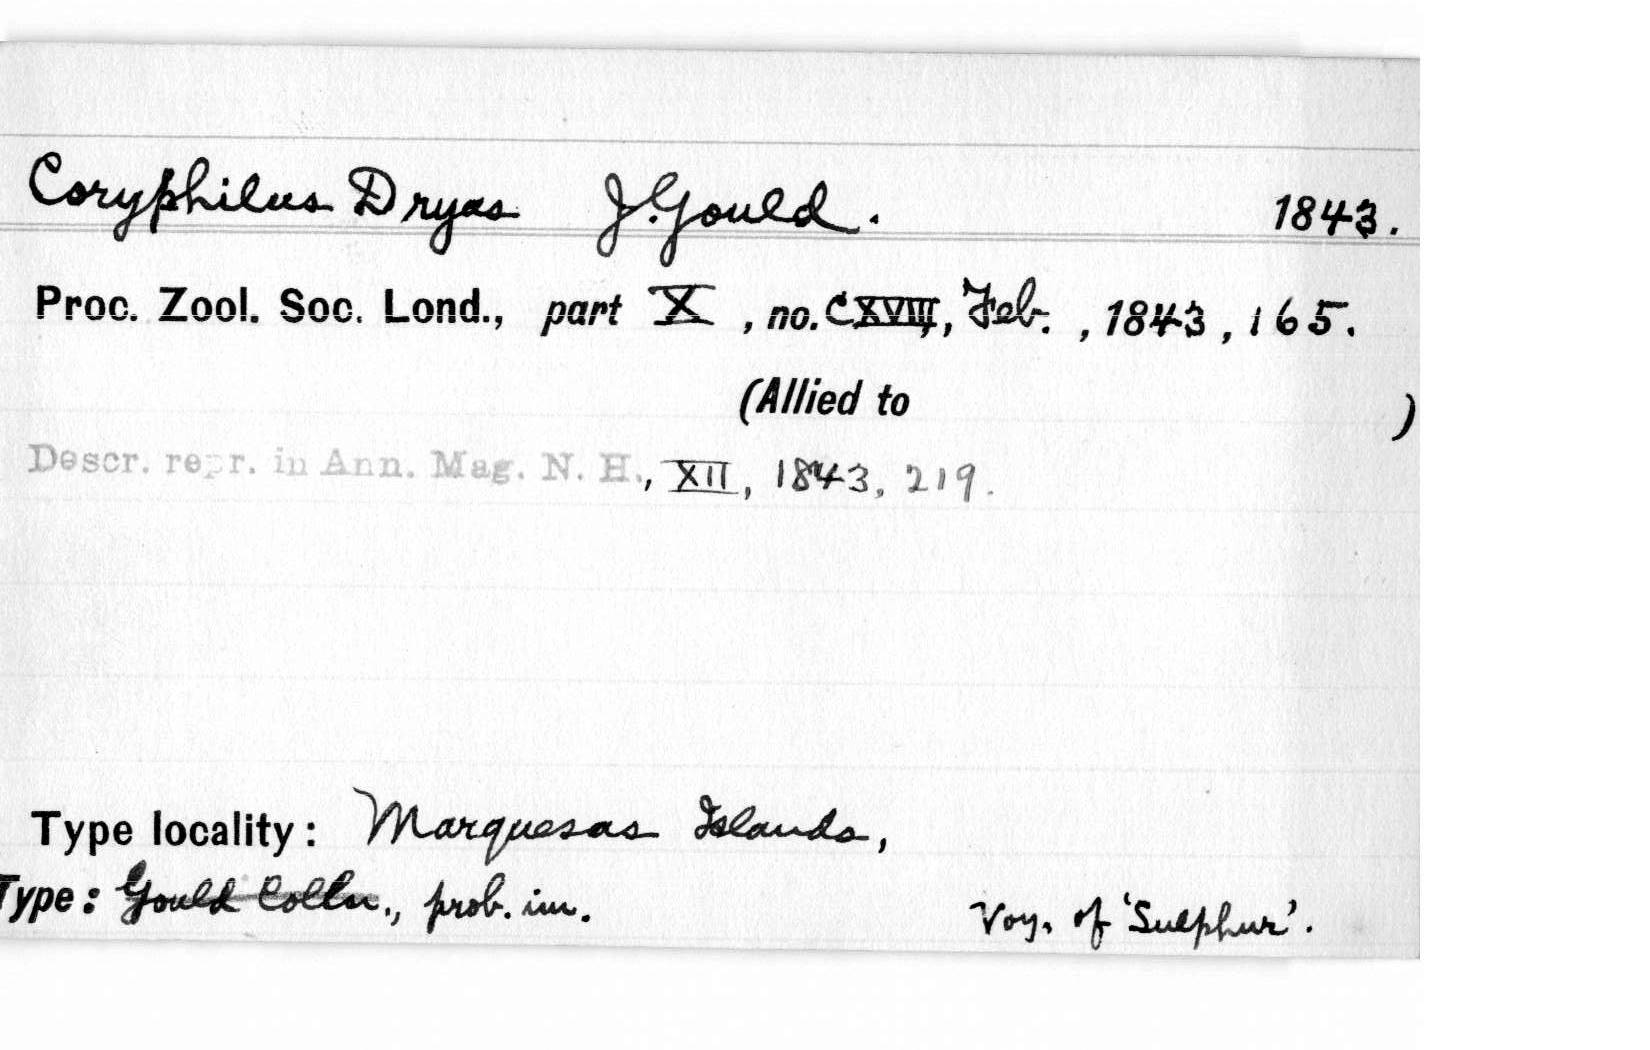 Coryphilus Dryas J. Gould. 1843.
Proc. Zool. Soc. Lond., part X, no. CXVIII, Feb., 1843, 165.
(Allied to )
Descr. repr. in Ann. Mag. N. H., XII, 1843, 219.
Type locality: Marquesas Islands,
Type: Gould Colln., prob. im. Voy. of 'Sulphur'.